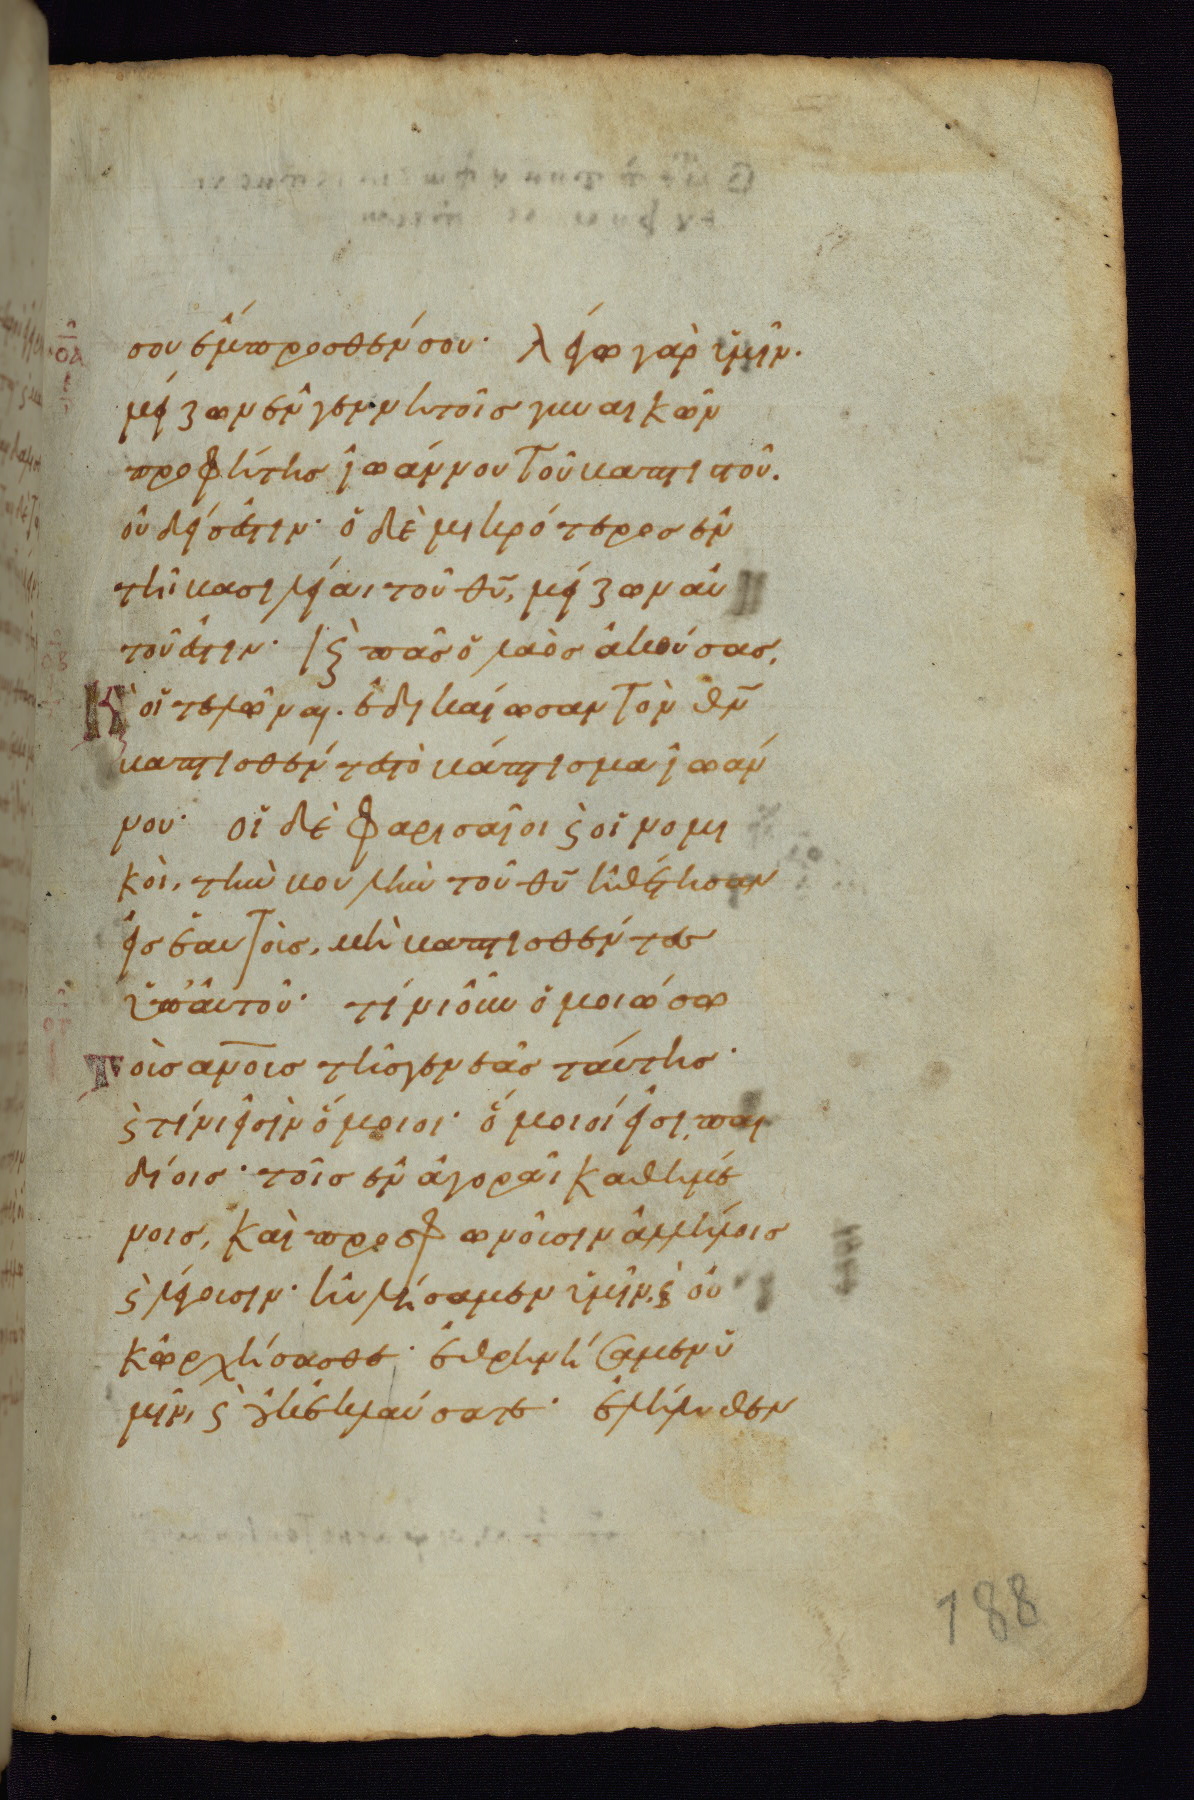 σου ἔμπροσθέν σου· λέγω γὰρ ὑμῖν.
μείζων ἐν γεννητοῖς γυναικῶν
προφήτης ἰωάννου τοῦ βαπτιστοῦ.
οὐδείς ἐστιν· ὁ δὲ μικρότερος ἐν
τῆ βασιλείαι τοῦ θυ, μείζων αὐ
τοῦ ἐστιν· ϛ πᾶς ὁ λαὸς ἀκούσας,
ϗ οἱ τελῶναι. ἐδικαίωσαν τὸν θν
βαπτισθέντες τὸ βάπτισμα ἰωάν
νου· οἱ δὲ φαρισαῖοι ϛ οἱ νομι
κοὶ, τὴν βουλὴν τοῦ θυ ἠθέτησαν
εἰς ἑαυτοὺς, μὴ βαπτισθέντες
ὑπ' αὐτοῦ· τίνι οὖν ὁμοιώσω
τοὺς ανους τῆς γενεᾶς ταύτης·
ϛ τίνι εἰσὶν ὅμοιοι· ὅμοιοί εἰσι, παι
δίοις· τοῖς ἐν ἀγορᾶι καθημέ
νοις, καὶ προσφωνοῦσιν ἀλλήλοις
ϛ λέγουσιν· ηὐλήσαμεν ὑμῖν, ϛ οὐ
κ ὠρχήσασθε· ἐθρηνήσαμεν ὑ
μῖν, ϛ οὐκ ἐκλαύσατε· ἐλήλυθεν
188